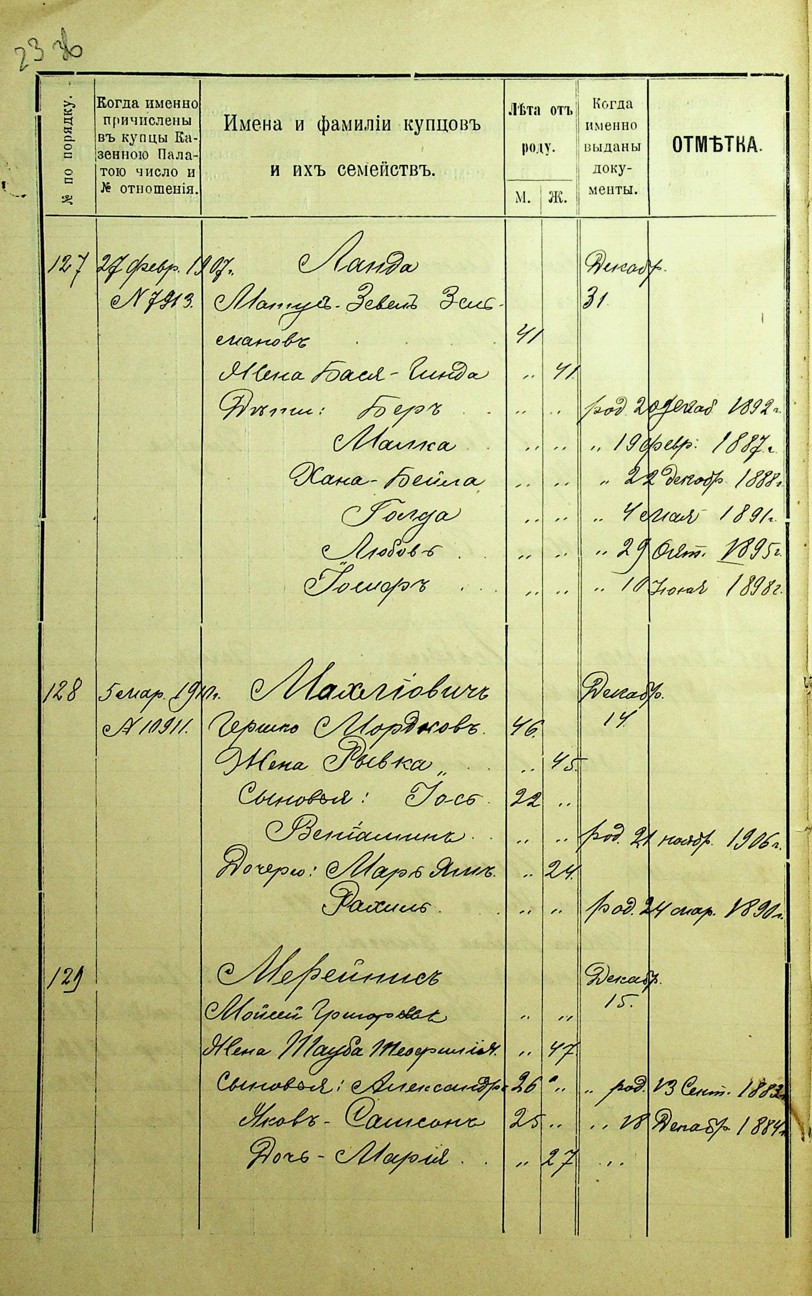 23
№ по порядку.
Когда именно
причислены
въ купцы Ка-
зенною Пала-
тою число и
№ отношенія.
Имена и фамиліи купцовъ
и ихъ семействъ.
Лѣта отъ
роду.
М. Ж.
Когда
именно
выданы
доку-
менты.
ОТМѢТКА.
127 27 февр. 1907г. Ланда Декабр.
N 7913. Зевель Зель- 31
мановъ 41
Жена Бася-Гинда „ 41
Дѣти: Беръ „ „ род. 20 декаб 1892г.
Малка „ „ „ 19 февр. 1887г.
Хана-Бейла „ „ „ 22 декабр. 1888г.
Голда „ „ „ 4 мая 1891г.
Любовь „ „ „ 29 Окт. 1895г.
„ „ „ 10 1898г.
128 5 мар. 1910г. Махліовичъ Декабр.
N 10911. Гершко Мордковъ. 46. 14.
Жена Рывка „ 45.
Сыновья: Іось 22 „
Веніаминъ „ „ род. 21 ноябр. 1906г.
Дочери: „ 24.
Рахиль „ „ род. 24 мар. 1890г.
129 Мерейнисъ Декабр.
Мойсей Григорьевъ „ „ 15.
Жена Тауба „ 47.
Сыновья: Александръ 26 „ „ род. 13 Сент. 1883г.
Яковъ-Самсонъ 25 „ „ 18 Декабр. 1884г.
Дочь-Марія „ 27 „